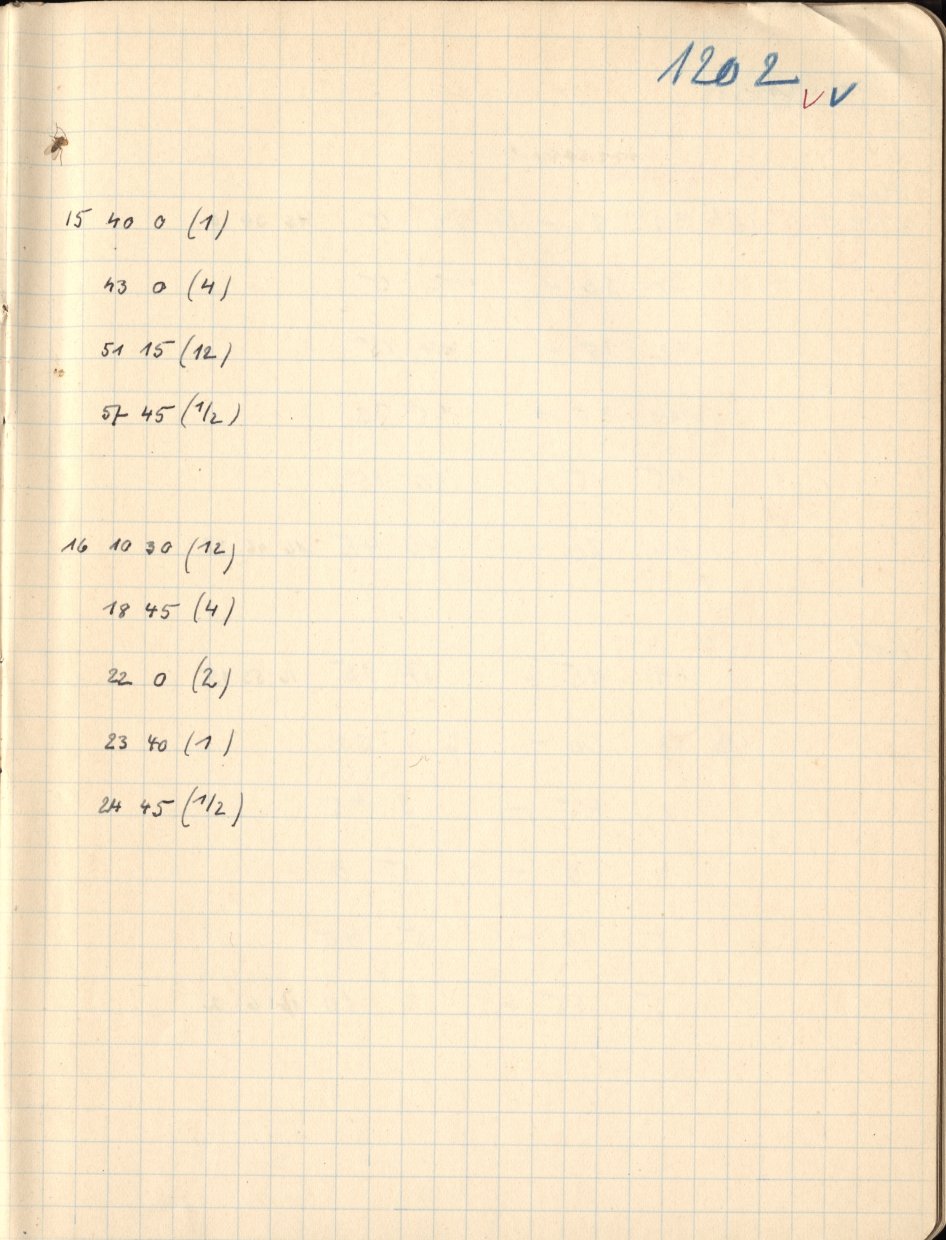 1202
15 40 0 (1)
43 0 (4)
51 15 (12)
57 45 (1/2)
16 10 30 (12)
18 45 (4)
22 0 (2)
23 40 (1)
24 45 (1/2)